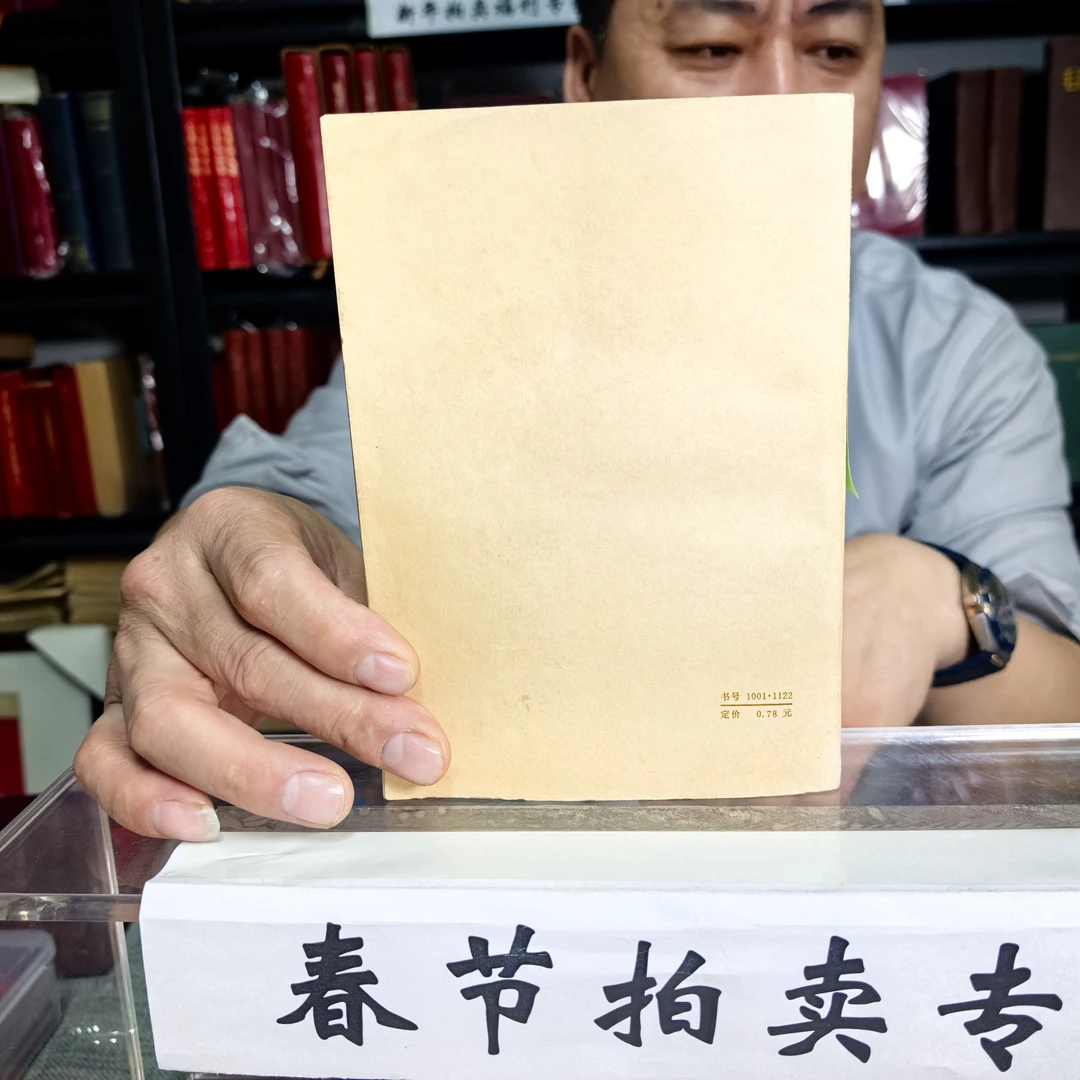 新年拍卖福利专
书号 1001·1122
定价 0.78 元
春节拍卖专